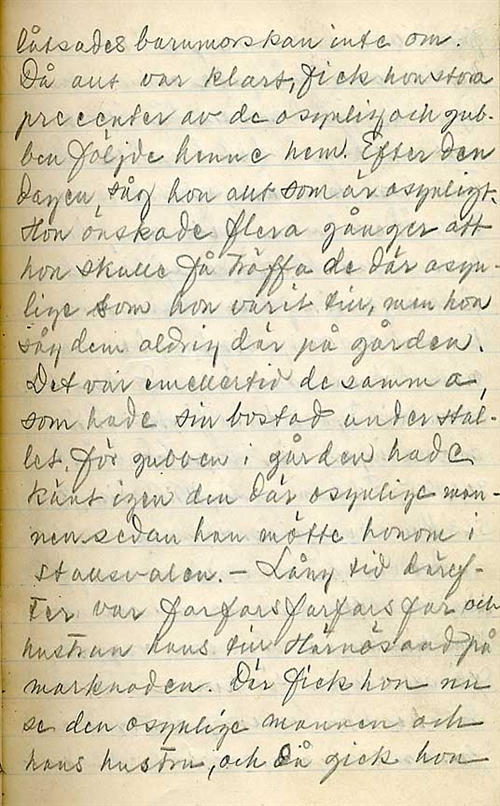 låtsades barnmorskan inte om.
Då allt var klart, fick hon stora
precenter av de osynlig och gub-
ben följde henne hem. Efter den
dagen såg hon allt som är osynligt.
Hon önskade flera gånger att
hon skulle få träffa de där osyn-
lige som hon varit till, men hon
såg dem aldrig där på gården.
Det var emellertid de samma,
som hade sin bostad under stal-
let, för gubben i gården hade
känt igen den där osynlige man-
nen sedan han mötte honom i
stallsvalen. – Lång tid däref-
ter var farfarsfarfars far och
hustrun hans till Härnösand på
marknaden. Där fick hon nu
se den osynlige mannen och
hans hustru, och då gick hon